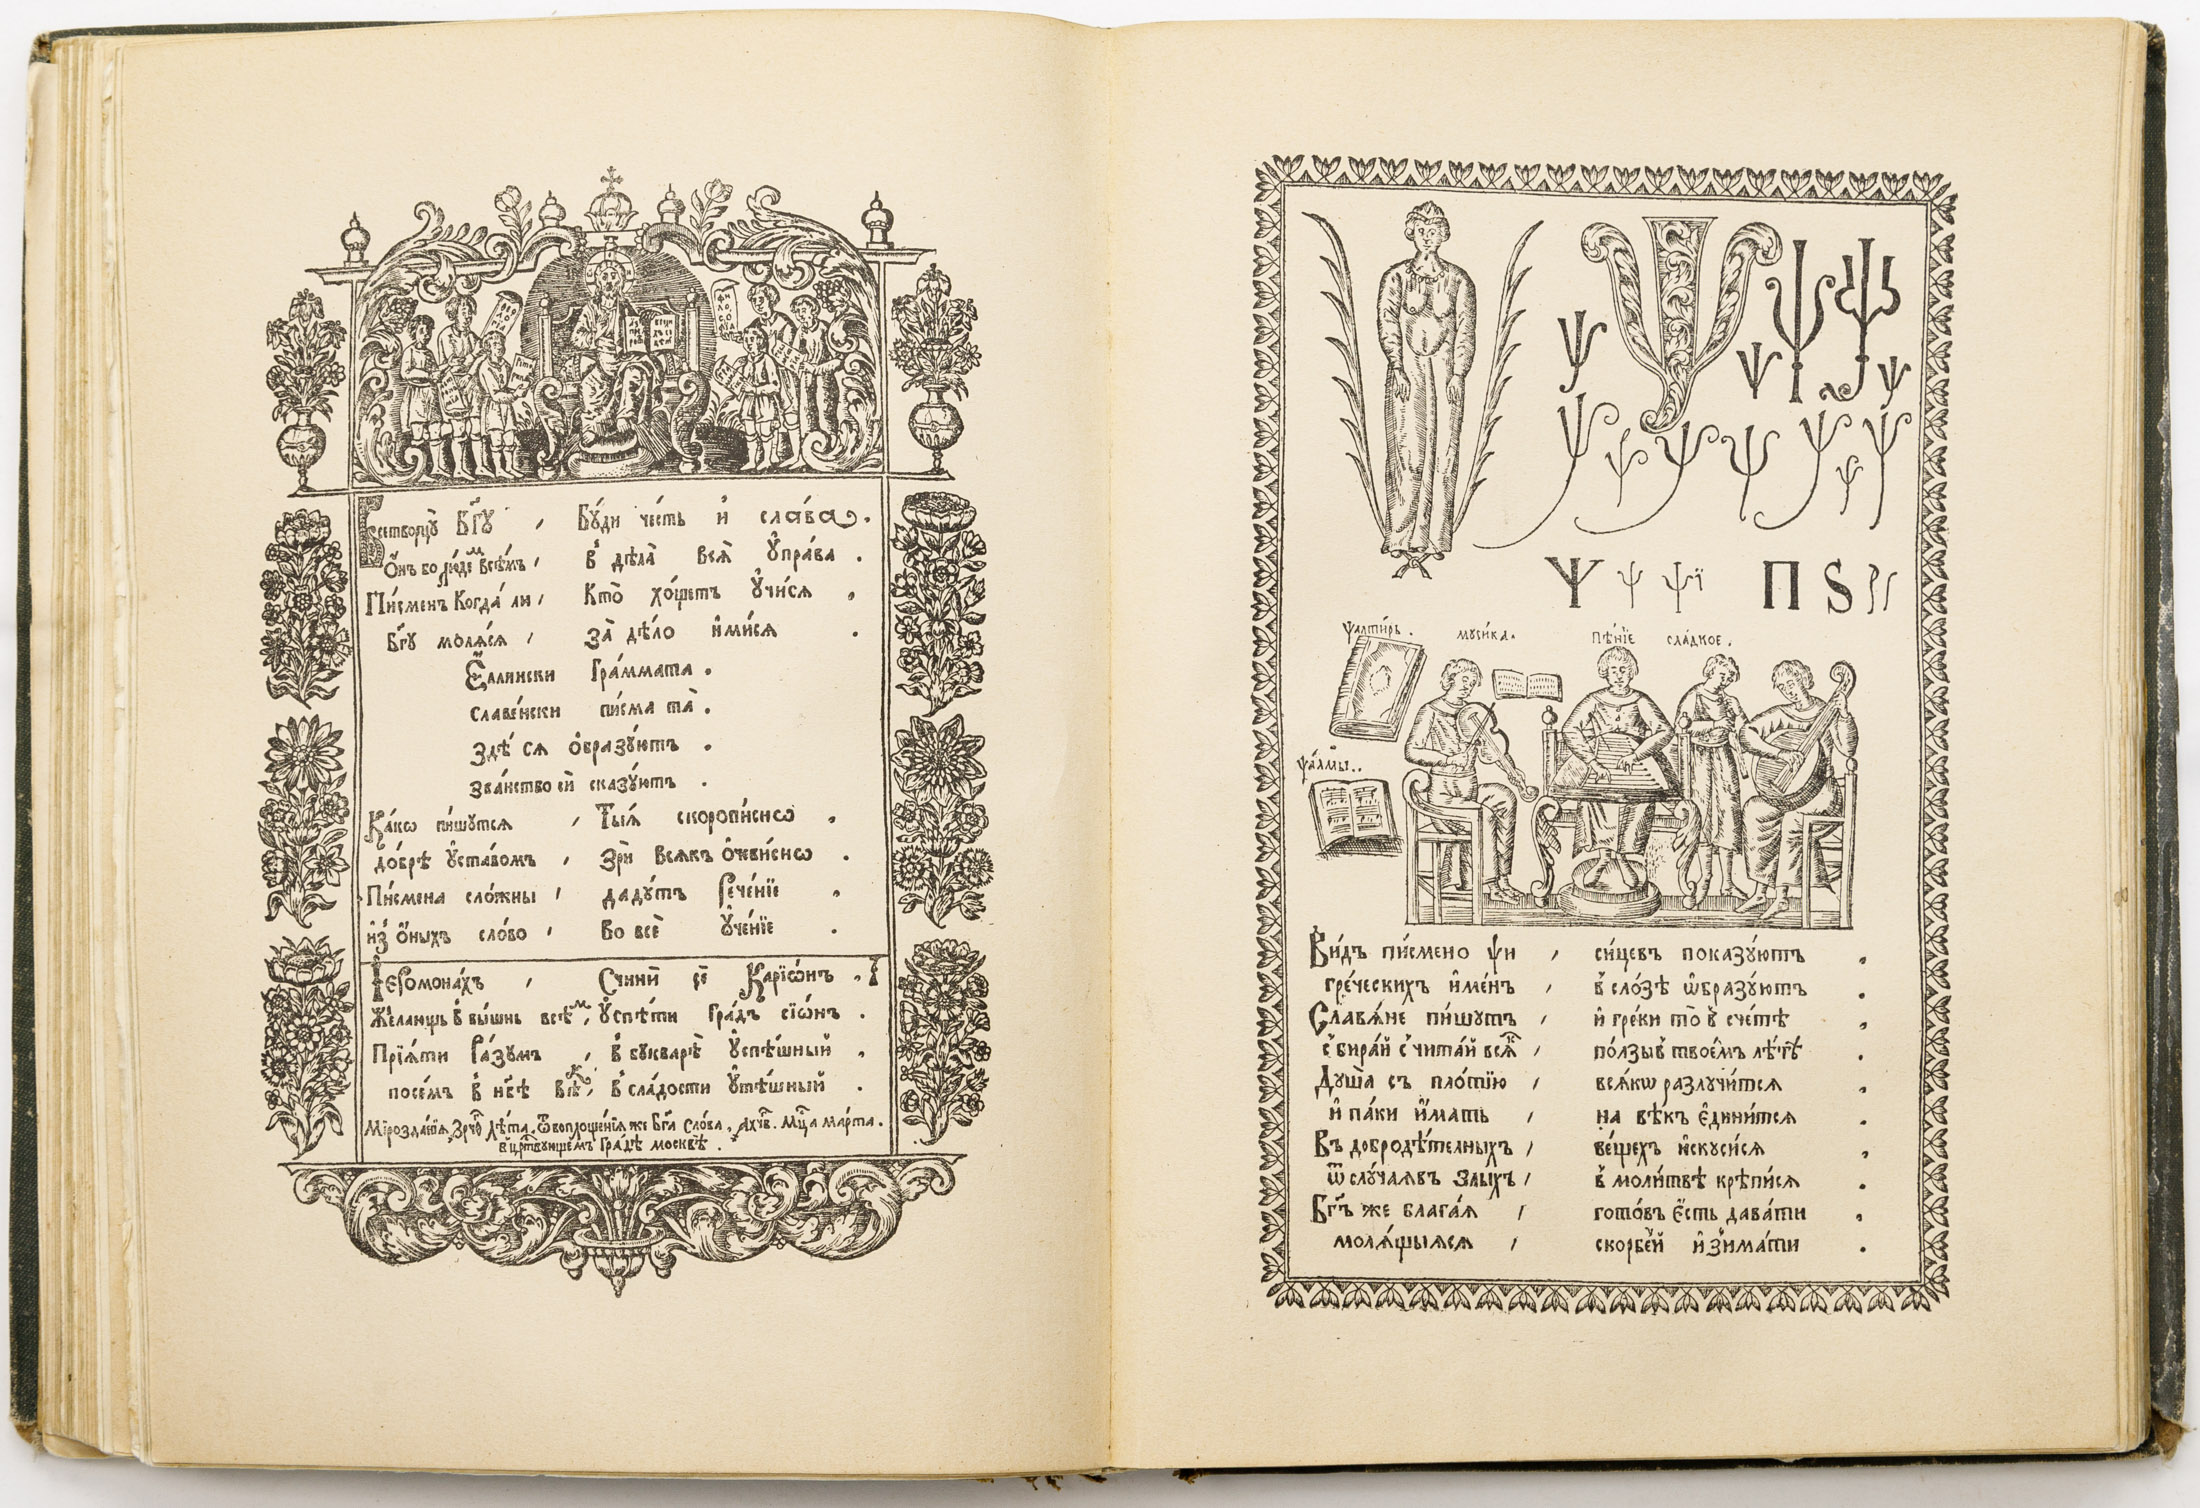 Всетворцу̀ Бг҃у, Бу́ди че́сть и҆ сла́ва.
Ѻ҆́нъ бо лю́демъ всѣ́мъ, в̾ дѣла̀ всѧ̑ ᲂу҆пра́ва.
Пи́сменъ когда́ ли, Кто̀ хо́щетъ ᲂу҆чи́сѧ,
Бг҃у молѧ́сѧ, за̀ дѣ́ло и҆ми́сѧ.
Е҆́ллински гра́ммата.
славе́нски пи́сма та̀.
здѣ́ сѧ ѻ҆бразу́ютъ.
зва́нство ей сказу́ютъ.
Ка́кѡ пи́шутсѧ, Ты́ѧ скоропи́снѡ,
до́брѣ ᲂу҆ста́вомъ, зрѝ всѧ́къ ѻ҆чеви́снѡ.
Пи́смена сло́жны, даду́тъ рече́нїе,
и҆з̾ ѻ҆́ныхъ сло́во, Во всѐ ᲂу҆че́нїе.
І҆еромона́хъ, Счини́ сїѐ Карїѡ́нъ,
Жела́ѧщь в̾ вы́шнь всѣ́мъ, ᲂу҆спѣ́ти гра́дъ сїѡ́нъ.
Прїѧ́ти ра́зумъ, в̾ букварѣ̀ ᲂу҆спѣ́шный,
посе́мъ в̾ нб҃ѣ вѣ́къ, в̾ сла́дости ᲂу҆тѣ́шный.
Мїрозда́нїѧ ҂зр҃чѳ лѣ́та. Ѿ воплоще́нїѧ же Бг҃а Сло́ва, ҂ах҃чв. Мц҃а ма́рта.
в̾ цр҃твующемъ гра́дѣ москвѣ̀.
Ѱ
Ѱ ѱ ѱї П Ѕ
ѱалти́рь. мꙋси́ка. пѣ́нїе сла́дкое.
ѱалмы̀.
Ви́дъ пи́смено ѱи, си́цевъ показу́ютъ,
гре́ческихъ и҆ме́нъ, в̾ сло́зѣ ѡ҆бразу́ютъ.
Славѧ́не пи́шутъ, и҆ гре́ки то̀ в̾ сче́тѣ,
с̾бира́й с̾чита́й всѧ̑, по́лзы в̾ твое́мъ лѣ́тѣ.
Душа̀ съ пло́тїю, всѧ́кѡ разлучи́тсѧ,
и҆ па́ки и҆́мать, на вѣ́къ є҆дини́тсѧ.
Въ добродѣ́телныхъ, ве́щехъ и҆скуси́сѧ,
ѿ слу́чаѧвъ злы́хъ, в̾ моли́твѣ крѣпи́сѧ.
Бг҃ъ же блага́ѧ, гото́въ є҆́сть дава́ти,
молѧ́щыѧсѧ, скорбе́й и҆зима́ти.